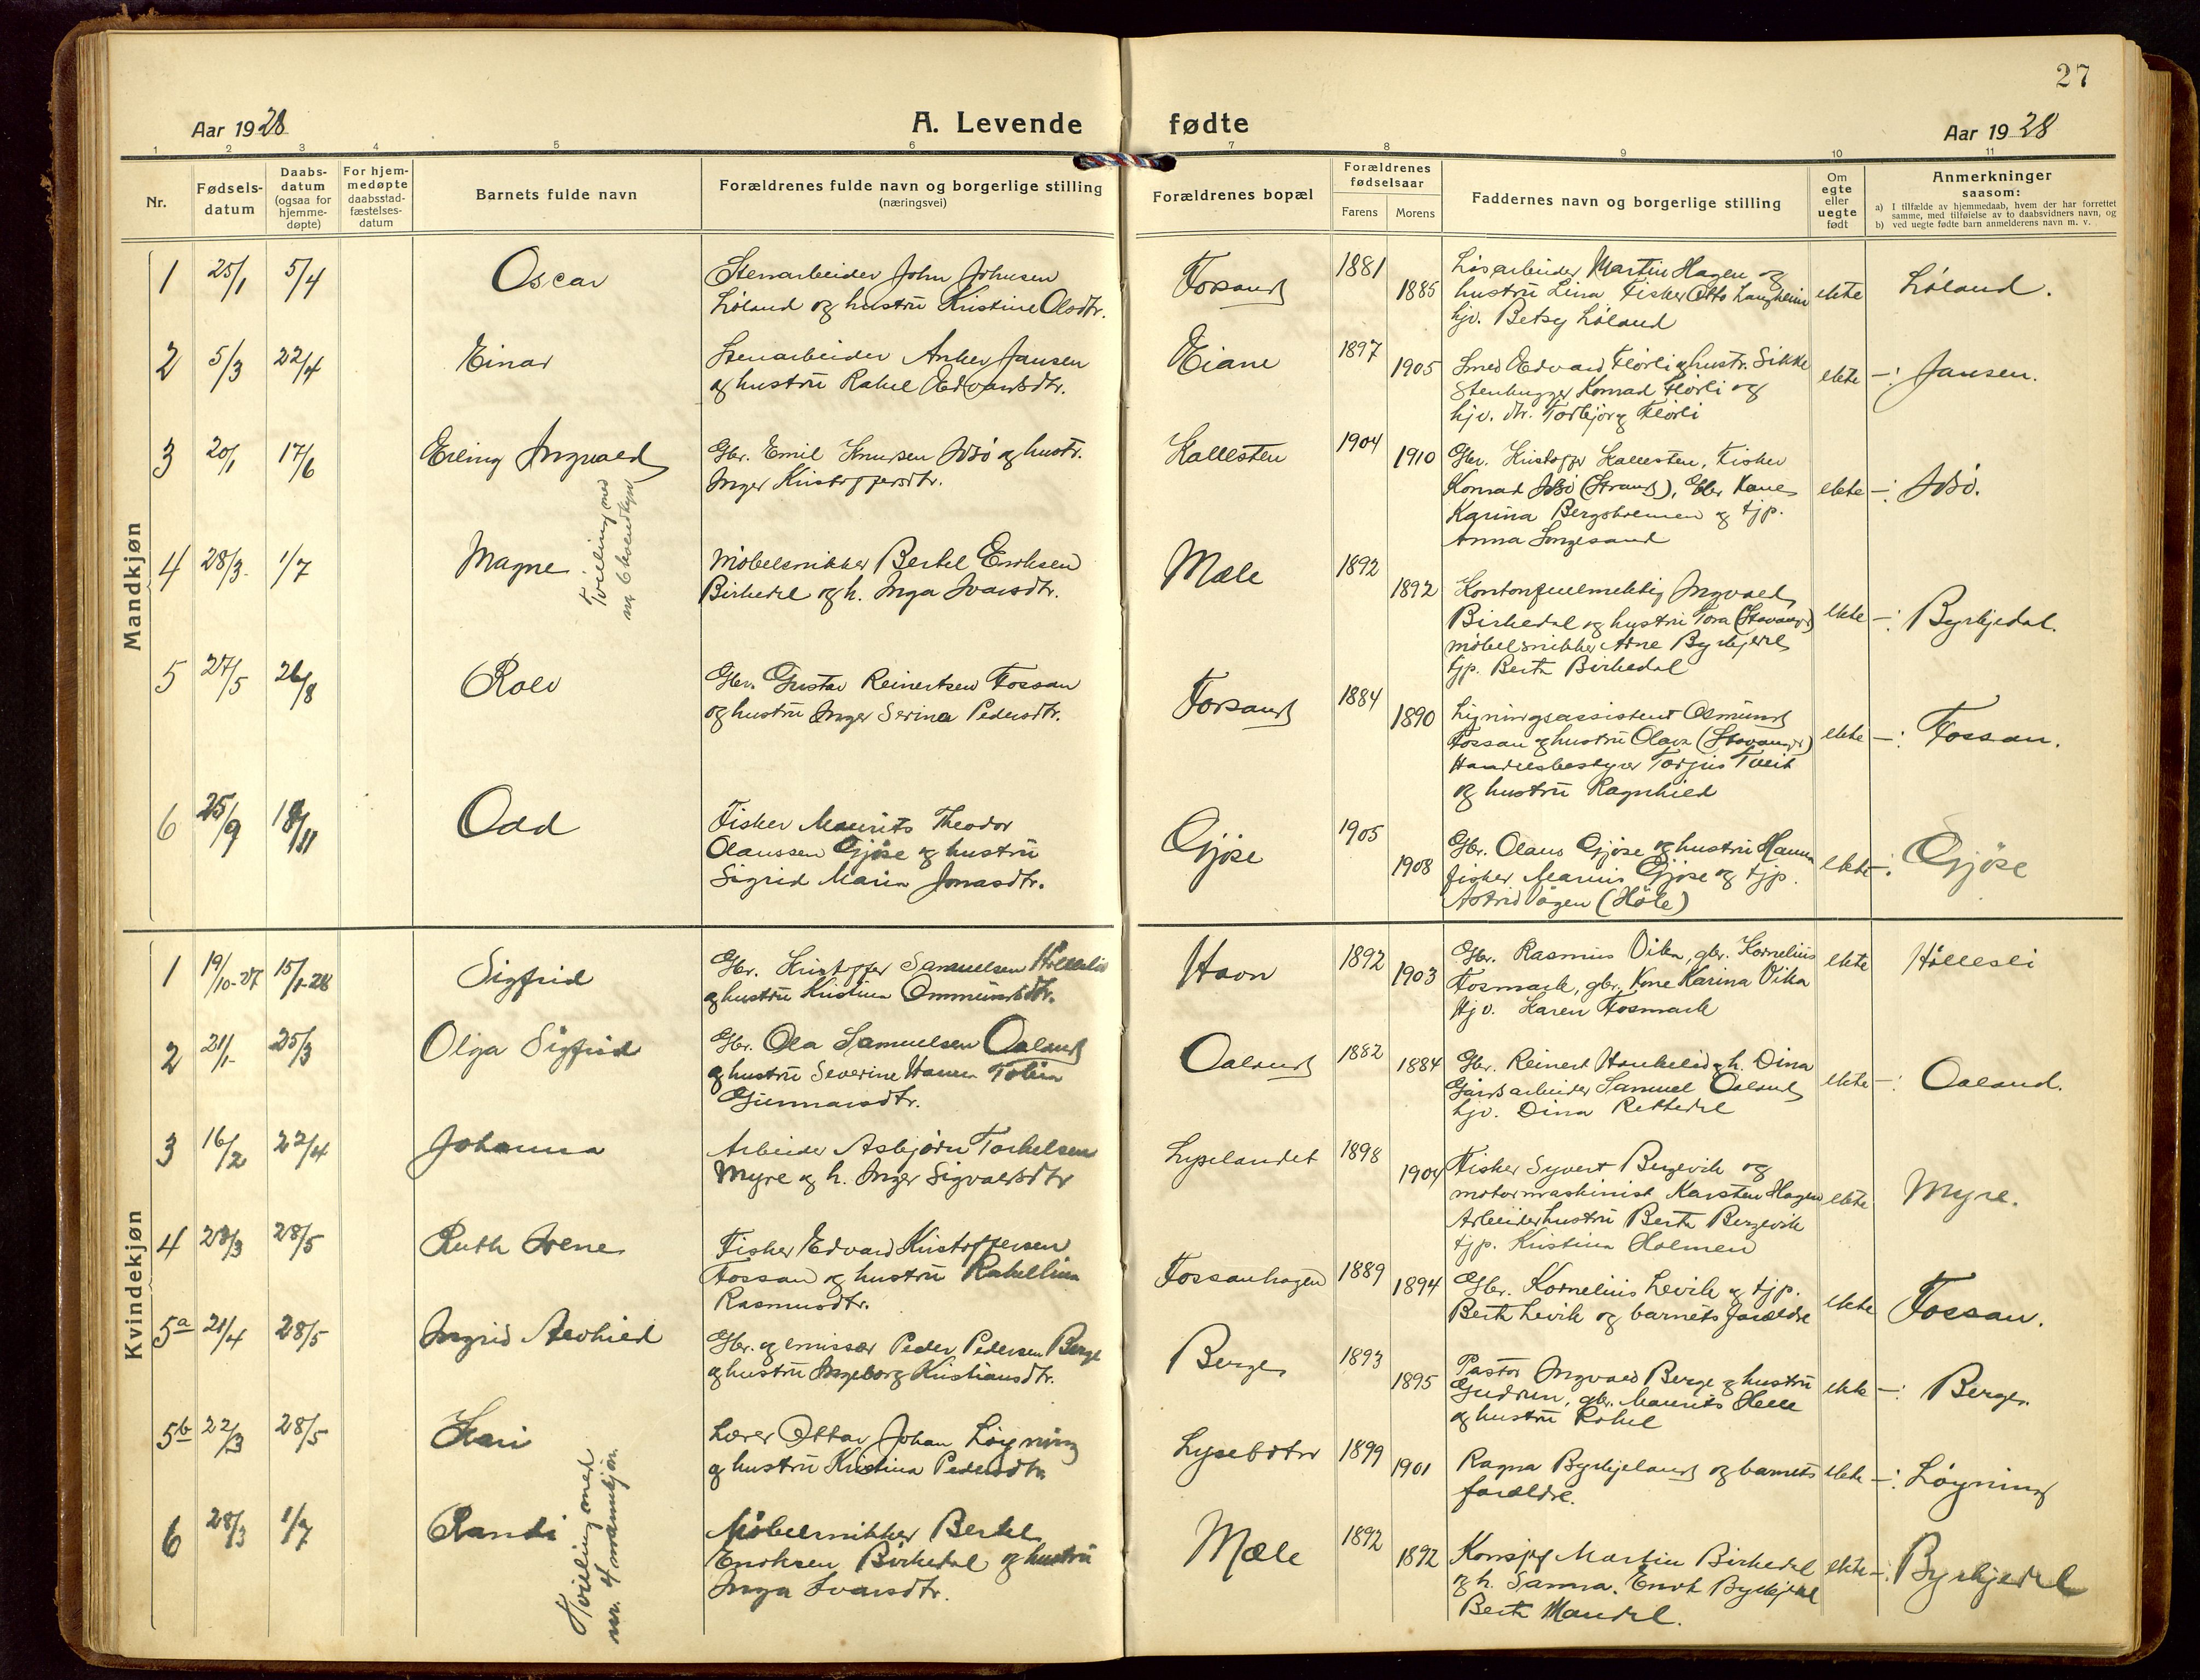 27
Aar 1928
A. Levende fødte
Aar 1928
1 2 3 4 5 6 7 8 9 10 11
Nr.
Fødsels-
datum
Daabs-
datum
(ogsaa for
hjemme-
døpte)
For hjem-
medøpte
daabsstad-
fæstelses-
datum
Barnets fulde navn
Forældrenes fulde navn og borgerlige stilling
(næringsvei)
Forældrenes bopæl
Forældrenes
fødselsaar
Farens Morens
Faddernes navn og borgerlige stilling
Om
egte
eller
uegte
født
Anmerkninger
saasom:
a) I tilfælde av hjemmedaab, hvem der har forrettet
samme, med tilføielse av to daabsvidners navn, og
b) ved uegte fødte barn anmelderens navn m. v.
Mandkjøn
1 25/1 5/4 Oscar
Stenarbeider John Johnsen
Løland og hustru Kristine Olsdtr.
Forsand 1881 1885
Løsarbeider Martin Hagen og
hustru Lina Fisker Otto Langheim
hjv. Betsy Løland
ekte Løland.
2 5/3 22/4 Einar
Stenarbeider Anker Jansen
og hustru Rakel Edvardsdtr.
Eiane 1897 1905
Smed Edvard Flørli og hustr. Sikke
Stenhugger Konrad Flørli og
hjv. dtr. Torbjørg Flørli
ekte -:- Jansen.
3 20/1 17/6 Erling Ingvald
Gbr. Emil Knudsen Idsø og hustr.
Inger Kristoffersdtr.
Kallesten 1904 1910
Gbr. Kristoffer Kallesten, Fisker
Konrad Idsø (Strand), Gbr. Kone
Karina Bergsholmen og tjp.
Anna Songesand
ekte -:- Idsø.
4 28/3 1/7 Magne
Tvilling med
nr 6 kvindkjøn
Møbelsnikker Bertel Enoksen
Birkedal og h. Inga Ivarsdtr.
Mæle 1892 1892
Kontorfuldmektig Ingvald
Birkedal og hustru Tora (Stavanger)
møbelsnikker Arne Byrkjedal
tjp. Berta Birkedal
ekte -:- Byrkjedal.
5 27/5 26/8 Rolv
Gbr. Gustav Reinertsen Fossan
og hustru Inger Serina Pedersdtr.
Forsand 1884 1890
Ligningsassistent Osmund
Fossan og hustru Olava (Stavanger)
Handelsbestyrer Torgius Tveit
og hustru Ragnhild
ekte -:- Fossan.
6 25/9 18/11 Odd
Fisker Maurits Theodor
Olaussen Gjøse og hustru
Sigrid Maria Jonasdtr.
Gjøse 1905 1908
Gbr. Olaus Gjøse og hustru Hanna
fisker Marius Gjøse og tjp.
Astrid Vågen (Høle)
ekte -:- Gjøse
Kvindekjøn
1 19/10-27 15/1-28 Sigfrid
Gbr. Kristoffer Samuelsen Hållesli
og hustru Kristina Ommundsdtr.
Havn 1892 1903
Gbr. Rasmus Vika, gbr. Kornelius
Fosmark, gbr. Kone Karina Vika
Hjv. Karen Fosmark
ekte Hållesli
2 21/1 25/3 Olga Sigfrid
Gbr. Ola Samuelsen Oaland
og hustru Severine Hanna Tolina
Gunnarsdtr.
Oaland 1882 1884
Gbr. Reinert Haukalid og h. Dina
Gårdsarbeider Samuel Oaland
hjv. Dina Rettedal
ekte -:- Oaland.
3 16/2 22/4 Johanna
Arbeider Asbjørn Torkelsen
Myre og h. Inger Sigvaldsdtr
Lyselandet 1898 1904
Fisker Syvert Bergevik og
motormaskinist Karsten Hagen
Arbeiderhustru Berta Bergevik
tjp. Kristina Holmen
ekte Myre.
4 28/3 28/5 Ruth Irene
Fisker Edvard Kristoffersen
Fossan og hustru Rakel Lina
Rasmusdtr.
Fossanhagen 1889 1894
Gbr. Kornelius Levik og tjp.
Berta Levik og barnets forældre
ekte Fossan.
5a 21/4 28/5 Ingrid Alvhild
Gbr. og emissær Peder Pedersen Berge
og hustru Ingeborg Kristiansdtr.
Berge 1893 1895
Pastor Ingvald Berge og hustru
Gudrun, gbr. Maurits Helle
og hustru Rakel
ekte -:- Berge.
5b 22/3 28/5 Kari
Lærer Ottar Johan Løyning
og hustru Kristina Pedersdtr
Lysebotn 1899 1901
Ragna Byrkjeland og barnets
forældre.
ekte -:- Løyning
6 28/3 1/7 Randi
Tvilling med
nr. 4 mannkjøn
Møbelsnikker Bertel
Enoksen Birkedal og hustru
Inga Ivarsdtr.
Mæle 1892 1892
Martin Birkedal
og h. Sanna. Enok Byrkjedal
Berta Mandal.
ekte -:- Byrkjedal